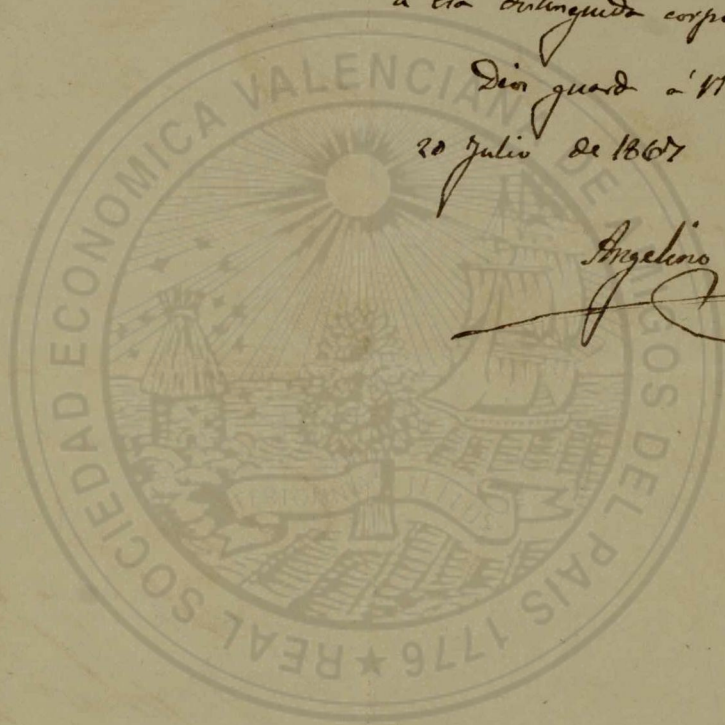 a esa distinguida
Dios guard á
20 Julio de 1867
Angelino
REAL SOCIEDAD ECONOMICA VALENCIANA DE AMIGOS DEL PAIS 1776 ★